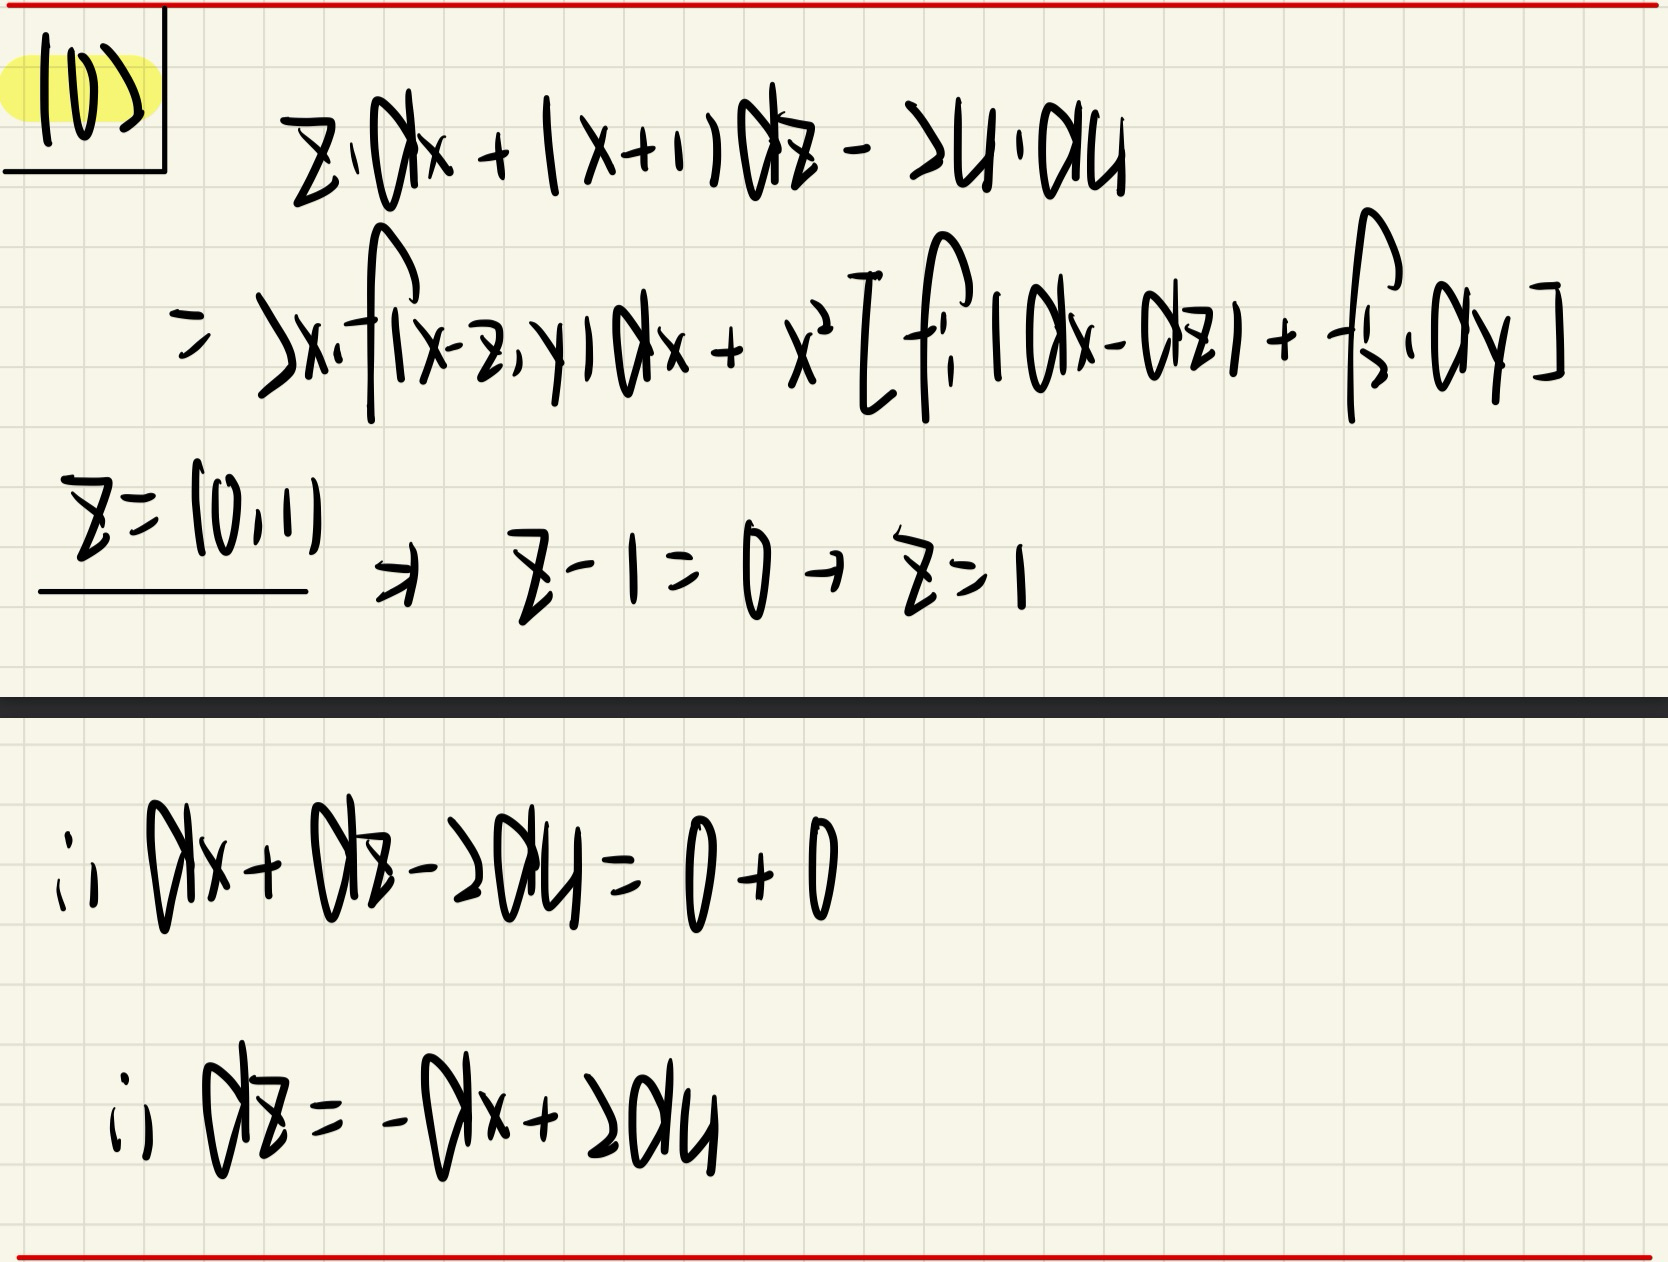 10)
z·dx + (x+1)dz - 2y·dy
= 2x·f(x-z, y)dx + x²[f₁'(dx-dz) + f₂'·dy]
z=(0,1) ⇒ z-1=0 → z=1
∴ dx+dz-2dy=0+0
∴ dz=-dx+2dy